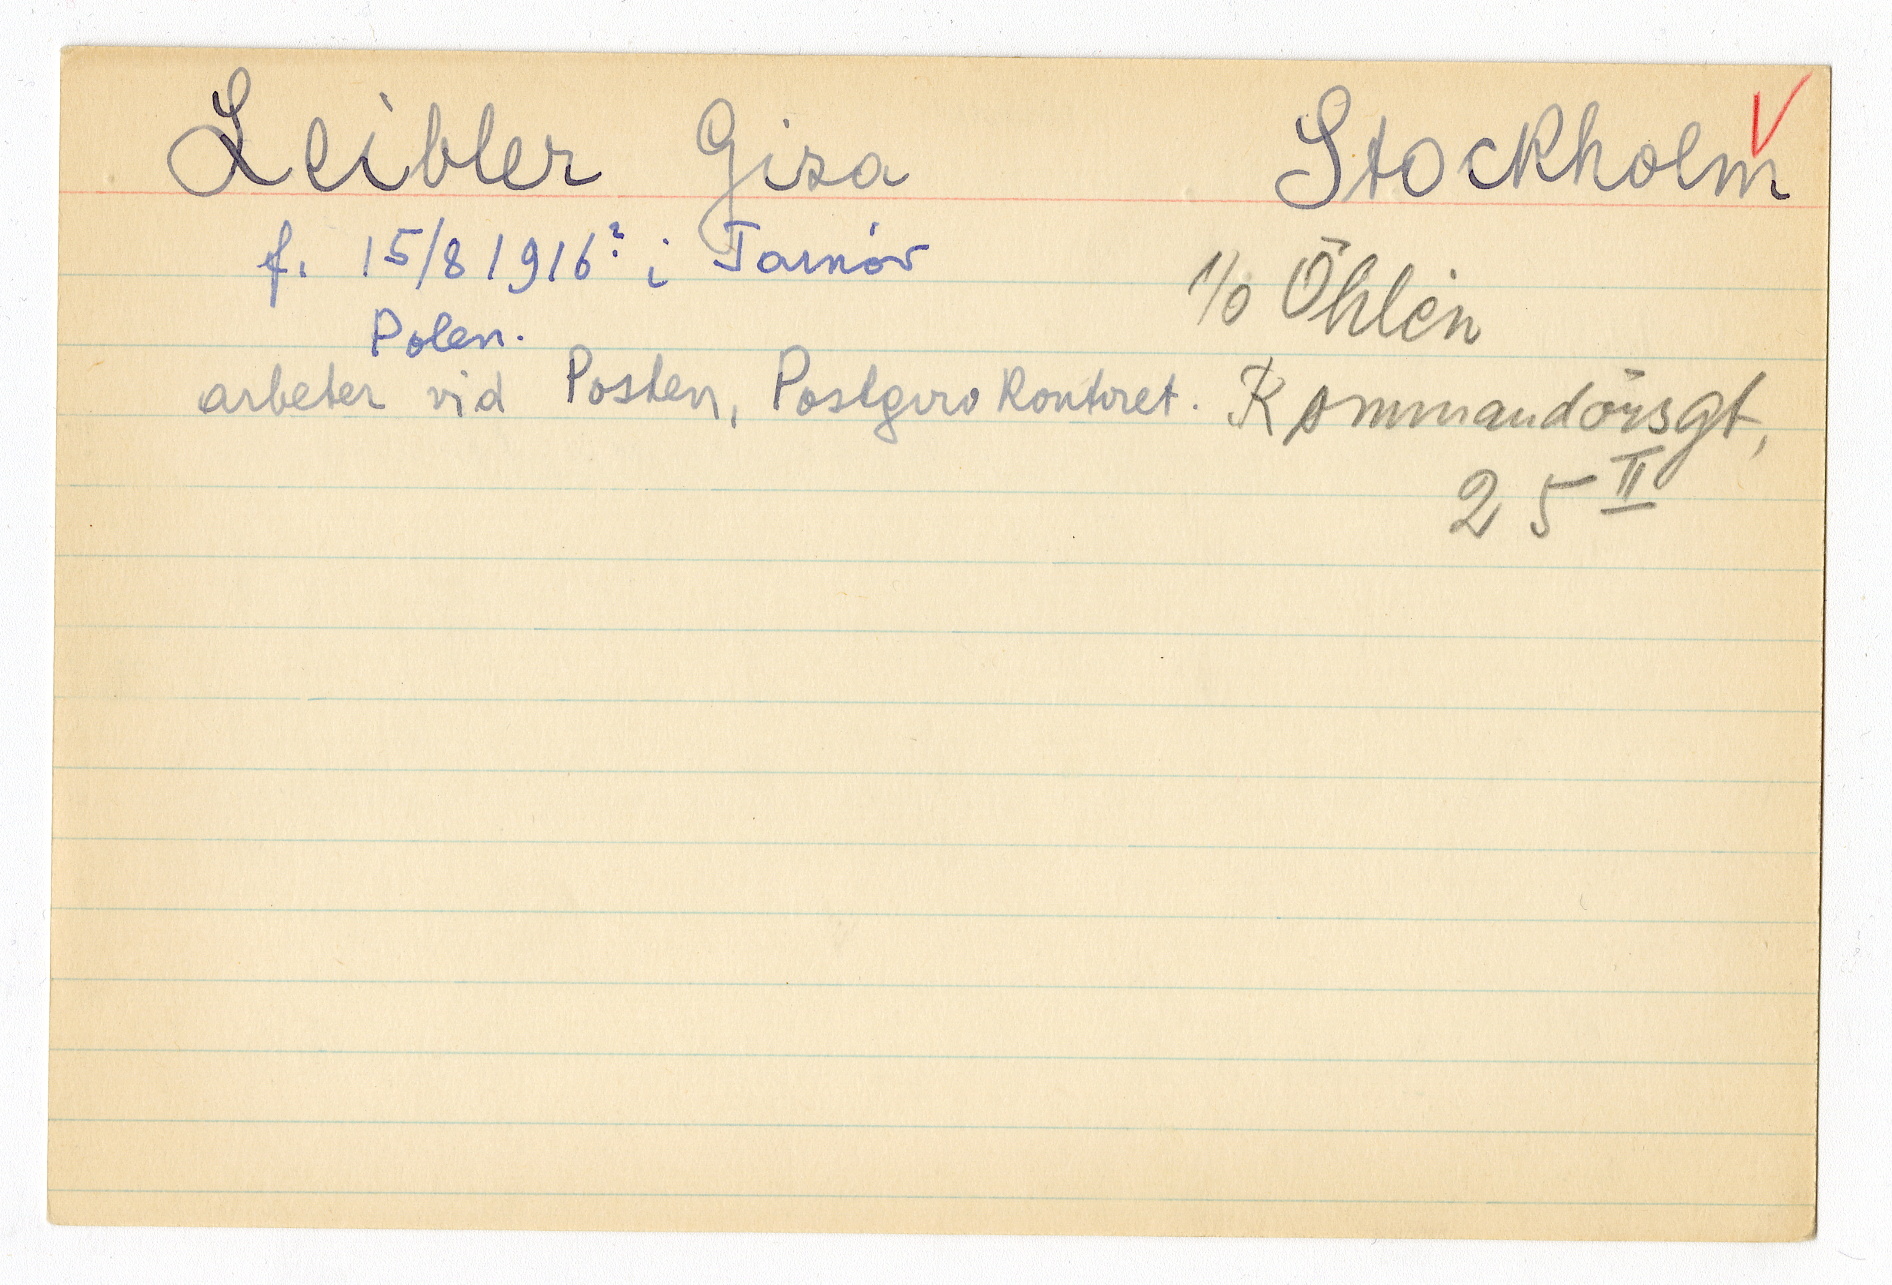 Leibler Gisa Stockholm
f. 15/8 1916? i Tarnóv
Polen.
c/o Öhlén
arbeter vid Posten, Postgirokontoret.
Kommandörsgt,
25 II